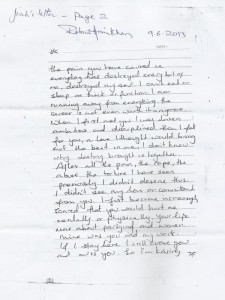 Jiah's letter - Page 2
9.6.2013
the pain you have caused me
everyday has destroyed every bit of
me, destroyed my soul. I can't eat or
sleep or think or function. I am
running away from everything. The
career is not even worth it anymore.
When I first met you I was driven,
ambitious and disciplined. Then I fell
for you, a love I thought would bring
out the best in me. I don't know
why destiny brought us together.
After all the pain, the rape, the
abuse, the torture I have seen
previously I didn't deserve this.
I didn't see any love or commitment
from you. I just became increasingly
scared that you would hurt me
mentally or physically. Your life
was about partying and women.
Mine was you and my work.
If I stay here I will crave you
and miss you. So I'm kissing